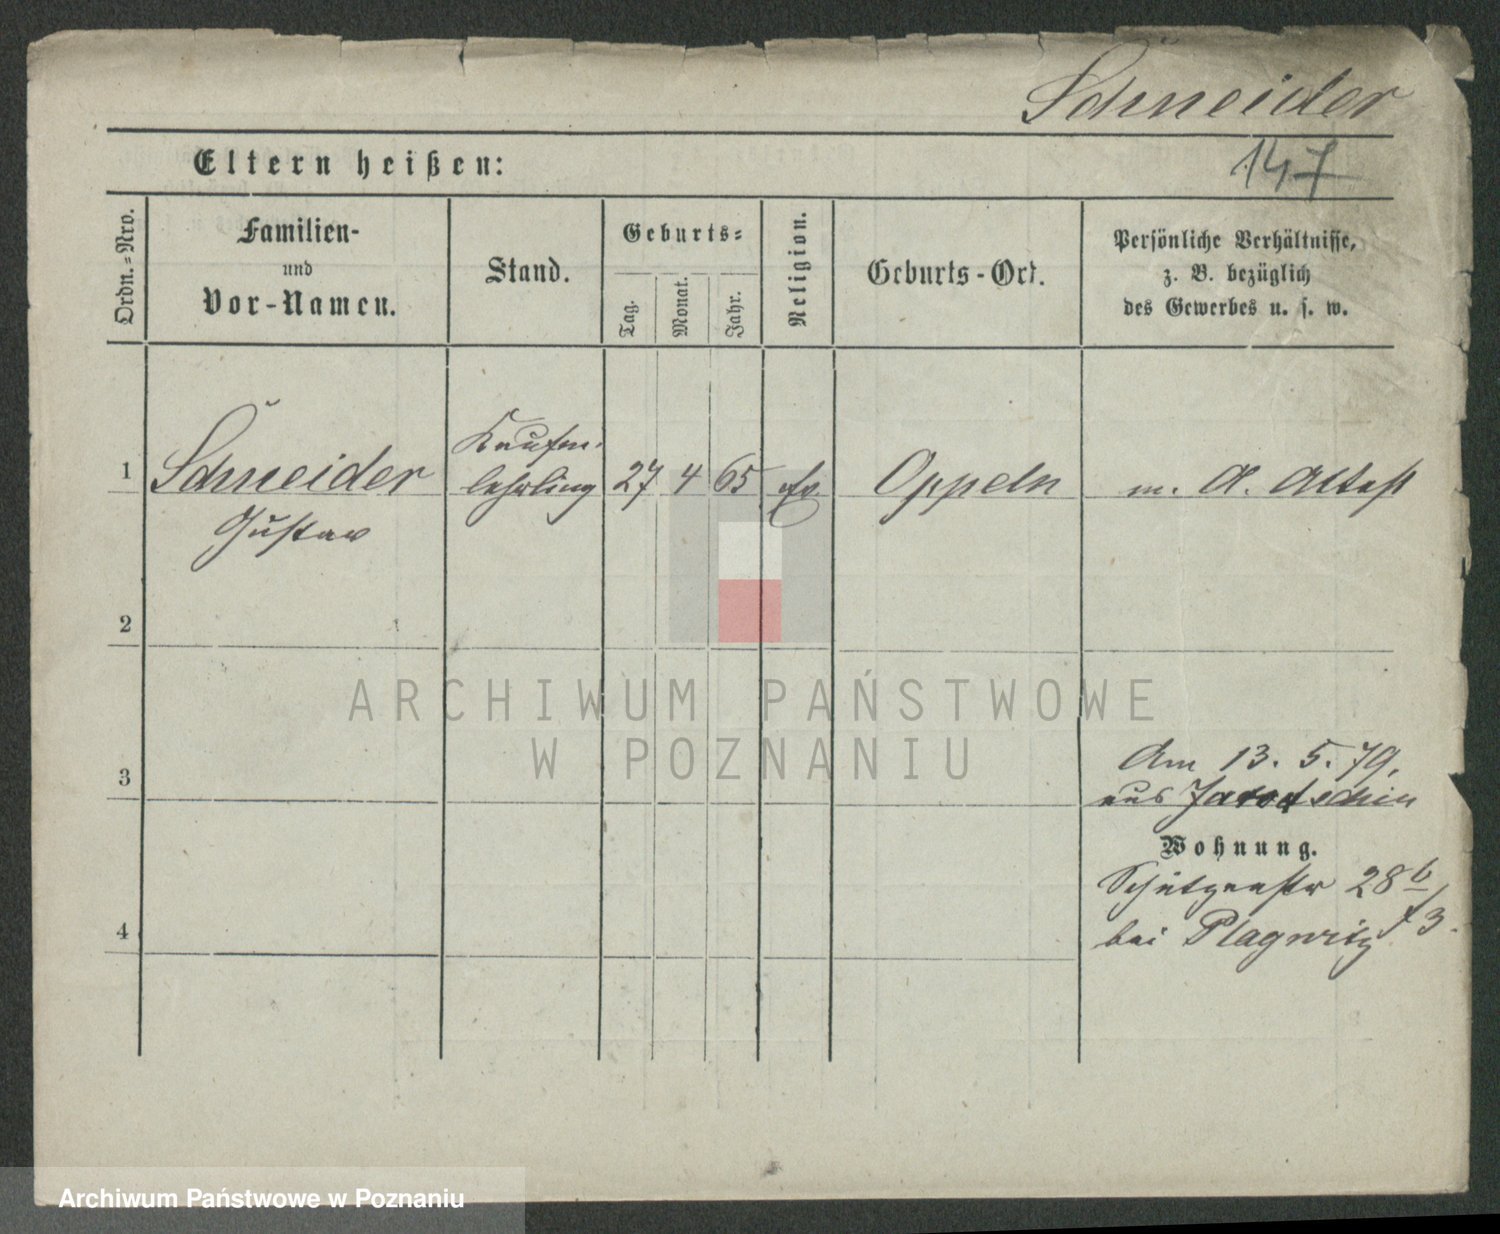 Schneider
147
Eltern heißen:
Ordn.-Nro.
Familien-
und
Vor-Namen.
Stand.
Geburts-
Tag.
Monat.
Jahr.
Religion.
Geburts-Ort.
Persönliche Verhältnisse,
z. B. bezüglich
des Gewerbes u. s. w.
1
Schneider
Gustav
Kaufm.
lehrling
27 4 65
Oppeln
m. A. Attest
2
3
4
Am 13. 5. 79.
aus Jarotschin
Wohnung.
Schützenstr 28 b
bei Plagwitz
ARCHIWUM PAŃSTWOWE
W POZNANIU
Archiwum Państwowe w Poznaniu